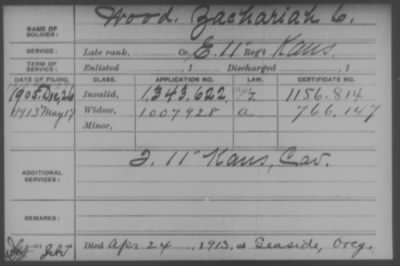 NAME OF SOLDIER: Wood, Zachariah C.
SERVICE: Late rank, Co. E. 11" Reg't Kans.
TERM OF SERVICE: Enlisted , 1 Discharged , 1
DATE OF FILING. CLASS. APPLICATION NO. LAW. CERTIFICATE NO.
1905. Dec. 26 Invalid, 1,343,622 1156.814
1913 May 17 Widow, 1007928 a 766,147
Minor,
ADDITIONAL SERVICES: 11" Kans, Cav.
REMARKS:
Died Apr 24, 1913, at Seaside, Oreg.